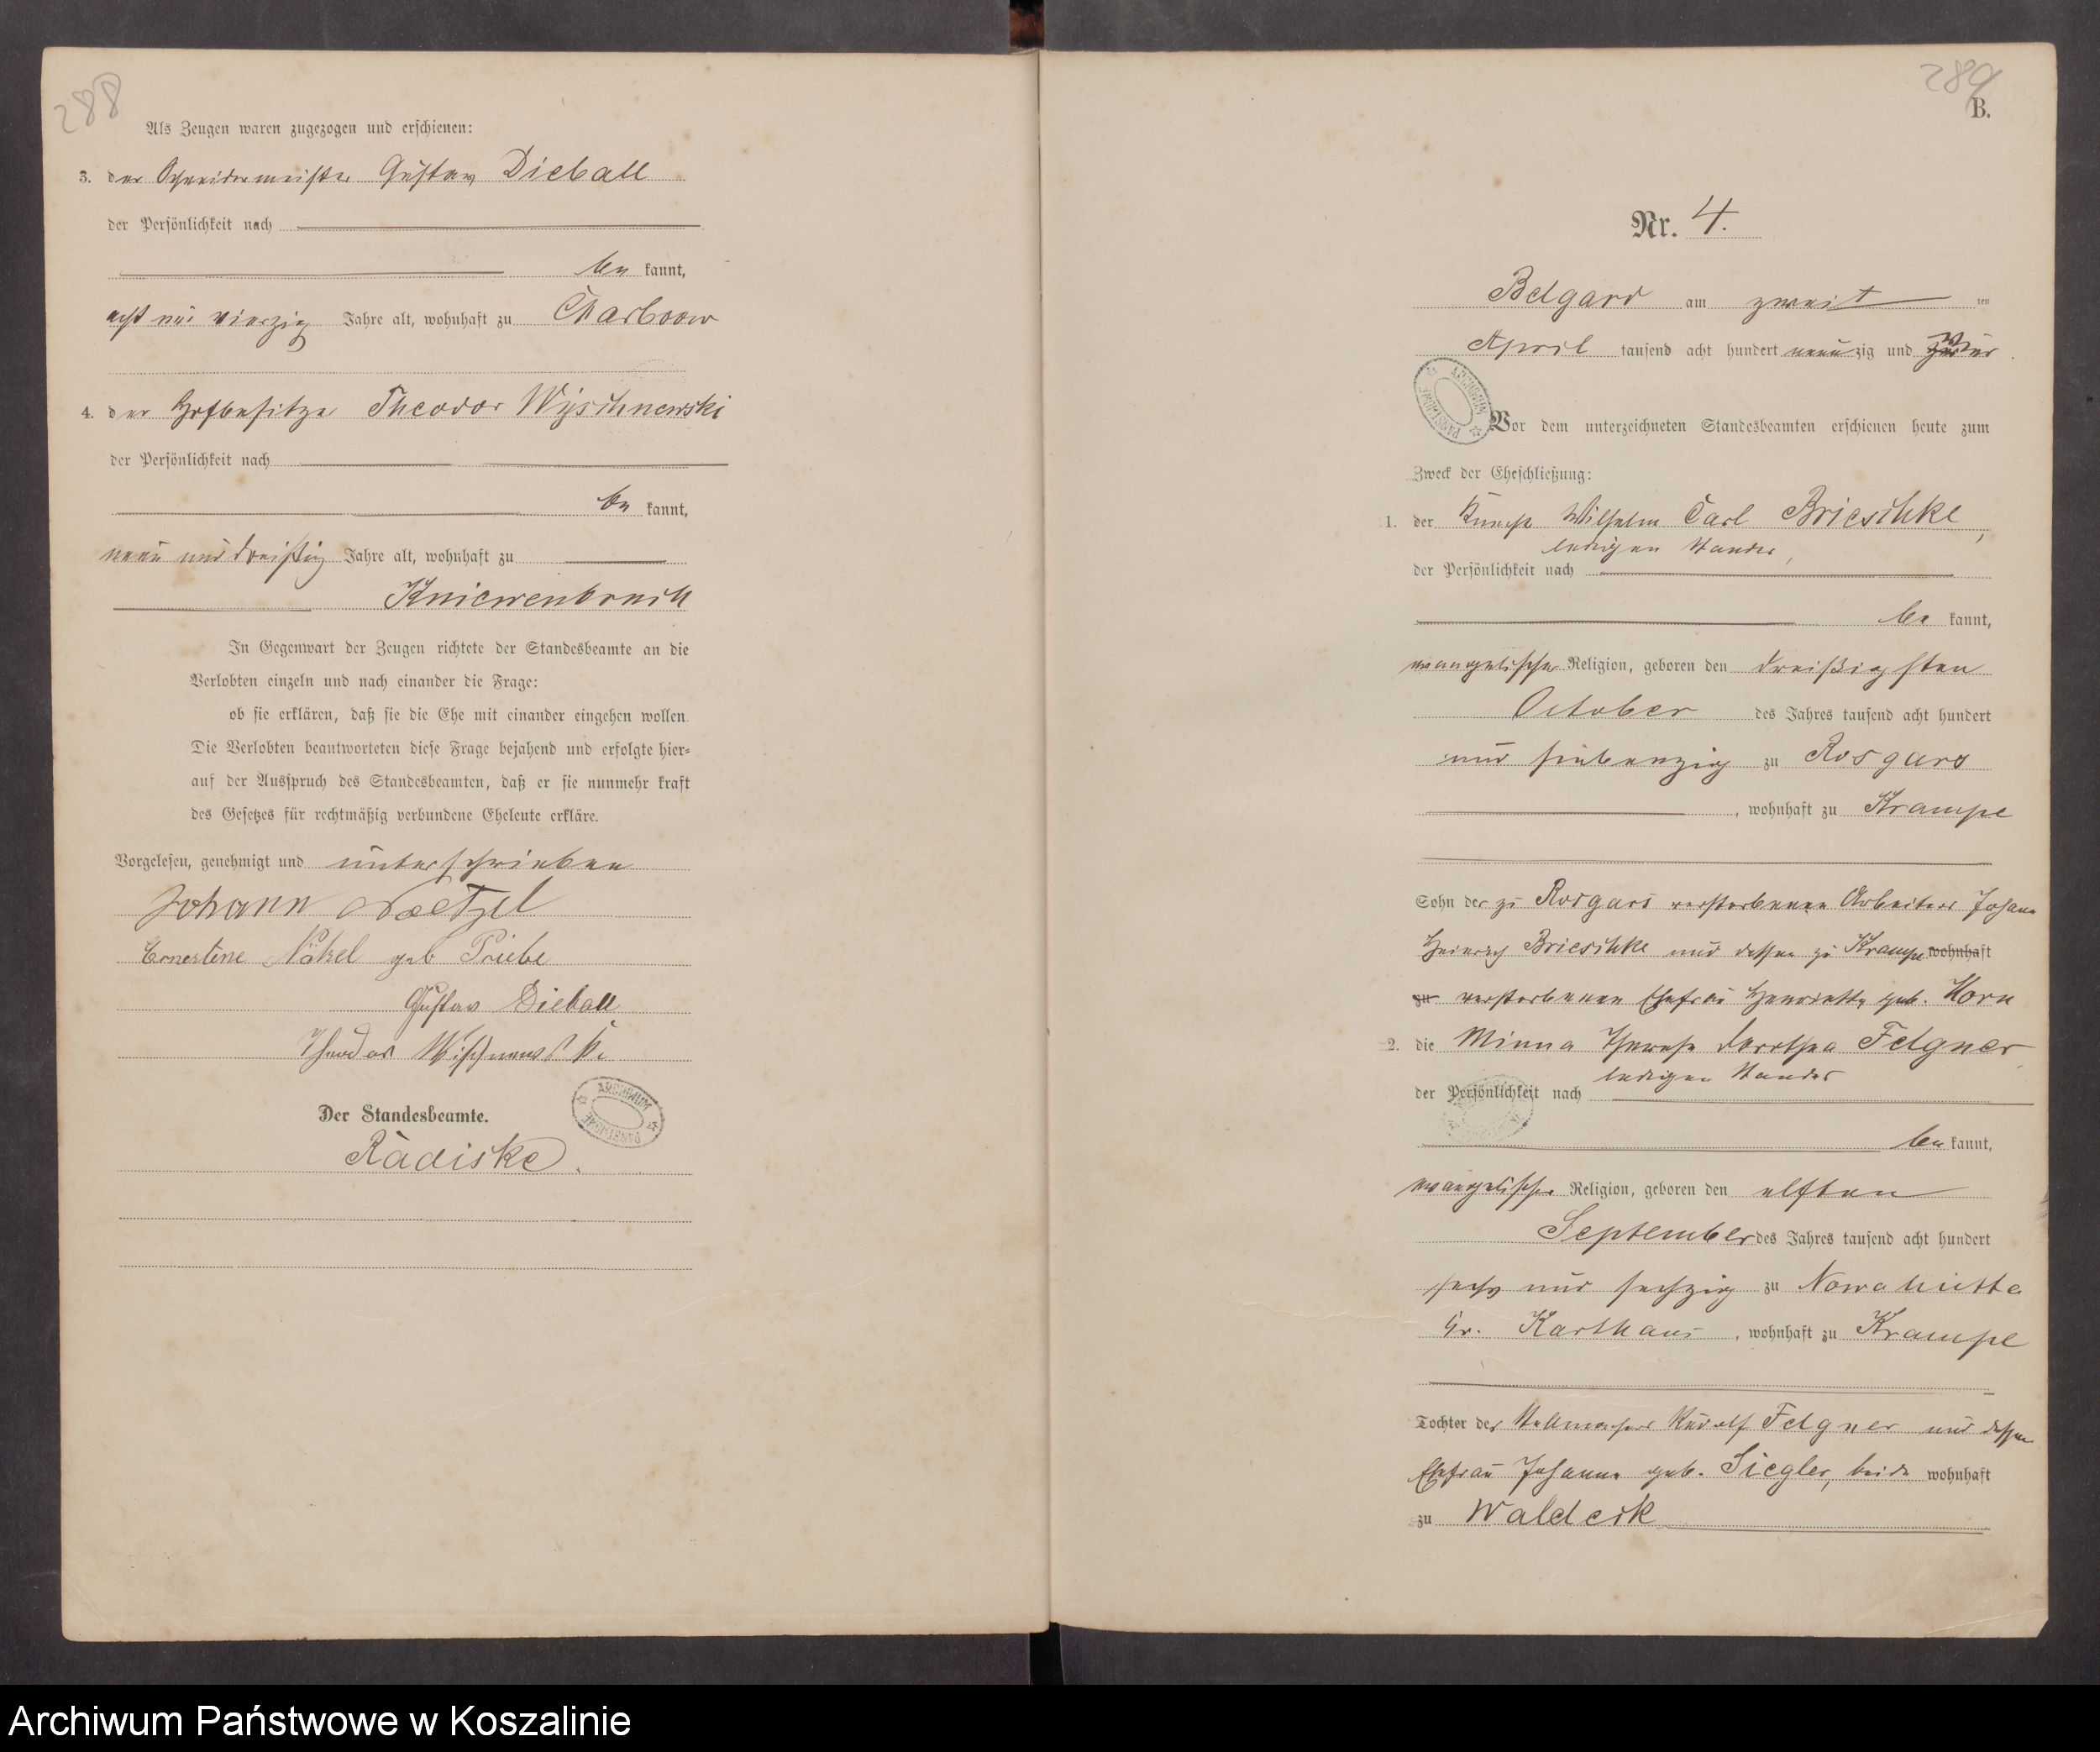 288
Als Zeugen waren zugezogen und erschienen:
3. der Schneidermeister Gustav Dieball
der Persönlichkeit nach
be kannt,
acht und vierzig Jahre alt, wohnhaft zu Charbrow
4. der Hofbesitzer Theodor Wyschnewski
der Persönlichkeit nach
be kannt,
neun und dreißig Jahre alt, wohnhaft zu
Kniewenbruch
In Gegenwart der Zeugen richtete der Standesbeamte an die
Verlobten einzeln und nach einander die Frage:
ob sie erklären, daß sie die Ehe mit einander eingehen wollen.
Die Verlobten beantworteten diese Frage bejahend und erfolgte hier-
auf der Ausspruch des Standesbeamten, daß er sie nunmehr kraft
des Gesetzes für rechtmäßig verbundene Eheleute erkläre.
Vorgelesen, genehmigt und unterschrieben
Johann Noetzel
Ernestine Nötzel geb Priebe
Gustav Dieball
Theodor Wischnewski
Der Standesbeamte.
Radiske.
ARCHIWUM PAŃSTWOWE
289
B.
Nr. 4.
Belgard am zweit ten
April tausend acht hundert neun zig und
ARCHIWUM PAŃSTWOWE
Vor dem unterzeichneten Standesbeamten erschienen heute zum
Zweck der Eheschließung:
1. der Knecht Wilhelm Carl Brieschke,
ledigen Standes,
der Persönlichkeit nach
be kannt,
evangelischer Religion, geboren den dreißigsten
October des Jahres tausend acht hundert
und siebenzig zu Rosgars
, wohnhaft zu Krampe
Sohn der zu Rosgars verstorbenen Arbeiters Johann
Heinrich Brieschke und dessen zu Krampe wohnhaft
zu verstorbenen Ehefrau Henriette geb. Horn
2. die Minna Therese Dorothea Felgner
ledigen Standes
der Persönlichkeit nach
be kannt,
evangelischer Religion, geboren den elften
September des Jahres tausend acht hundert
sechs und sechzig zu Nowahutta
Kr. Karthaus, wohnhaft zu Krampe
Tochter des Stellmachers Rudolf Felgner und dessen
Ehefrau Johanna geb. Siegler, beide wohnhaft
zu Waldeck
Archiwum Państwowe w Koszalinie